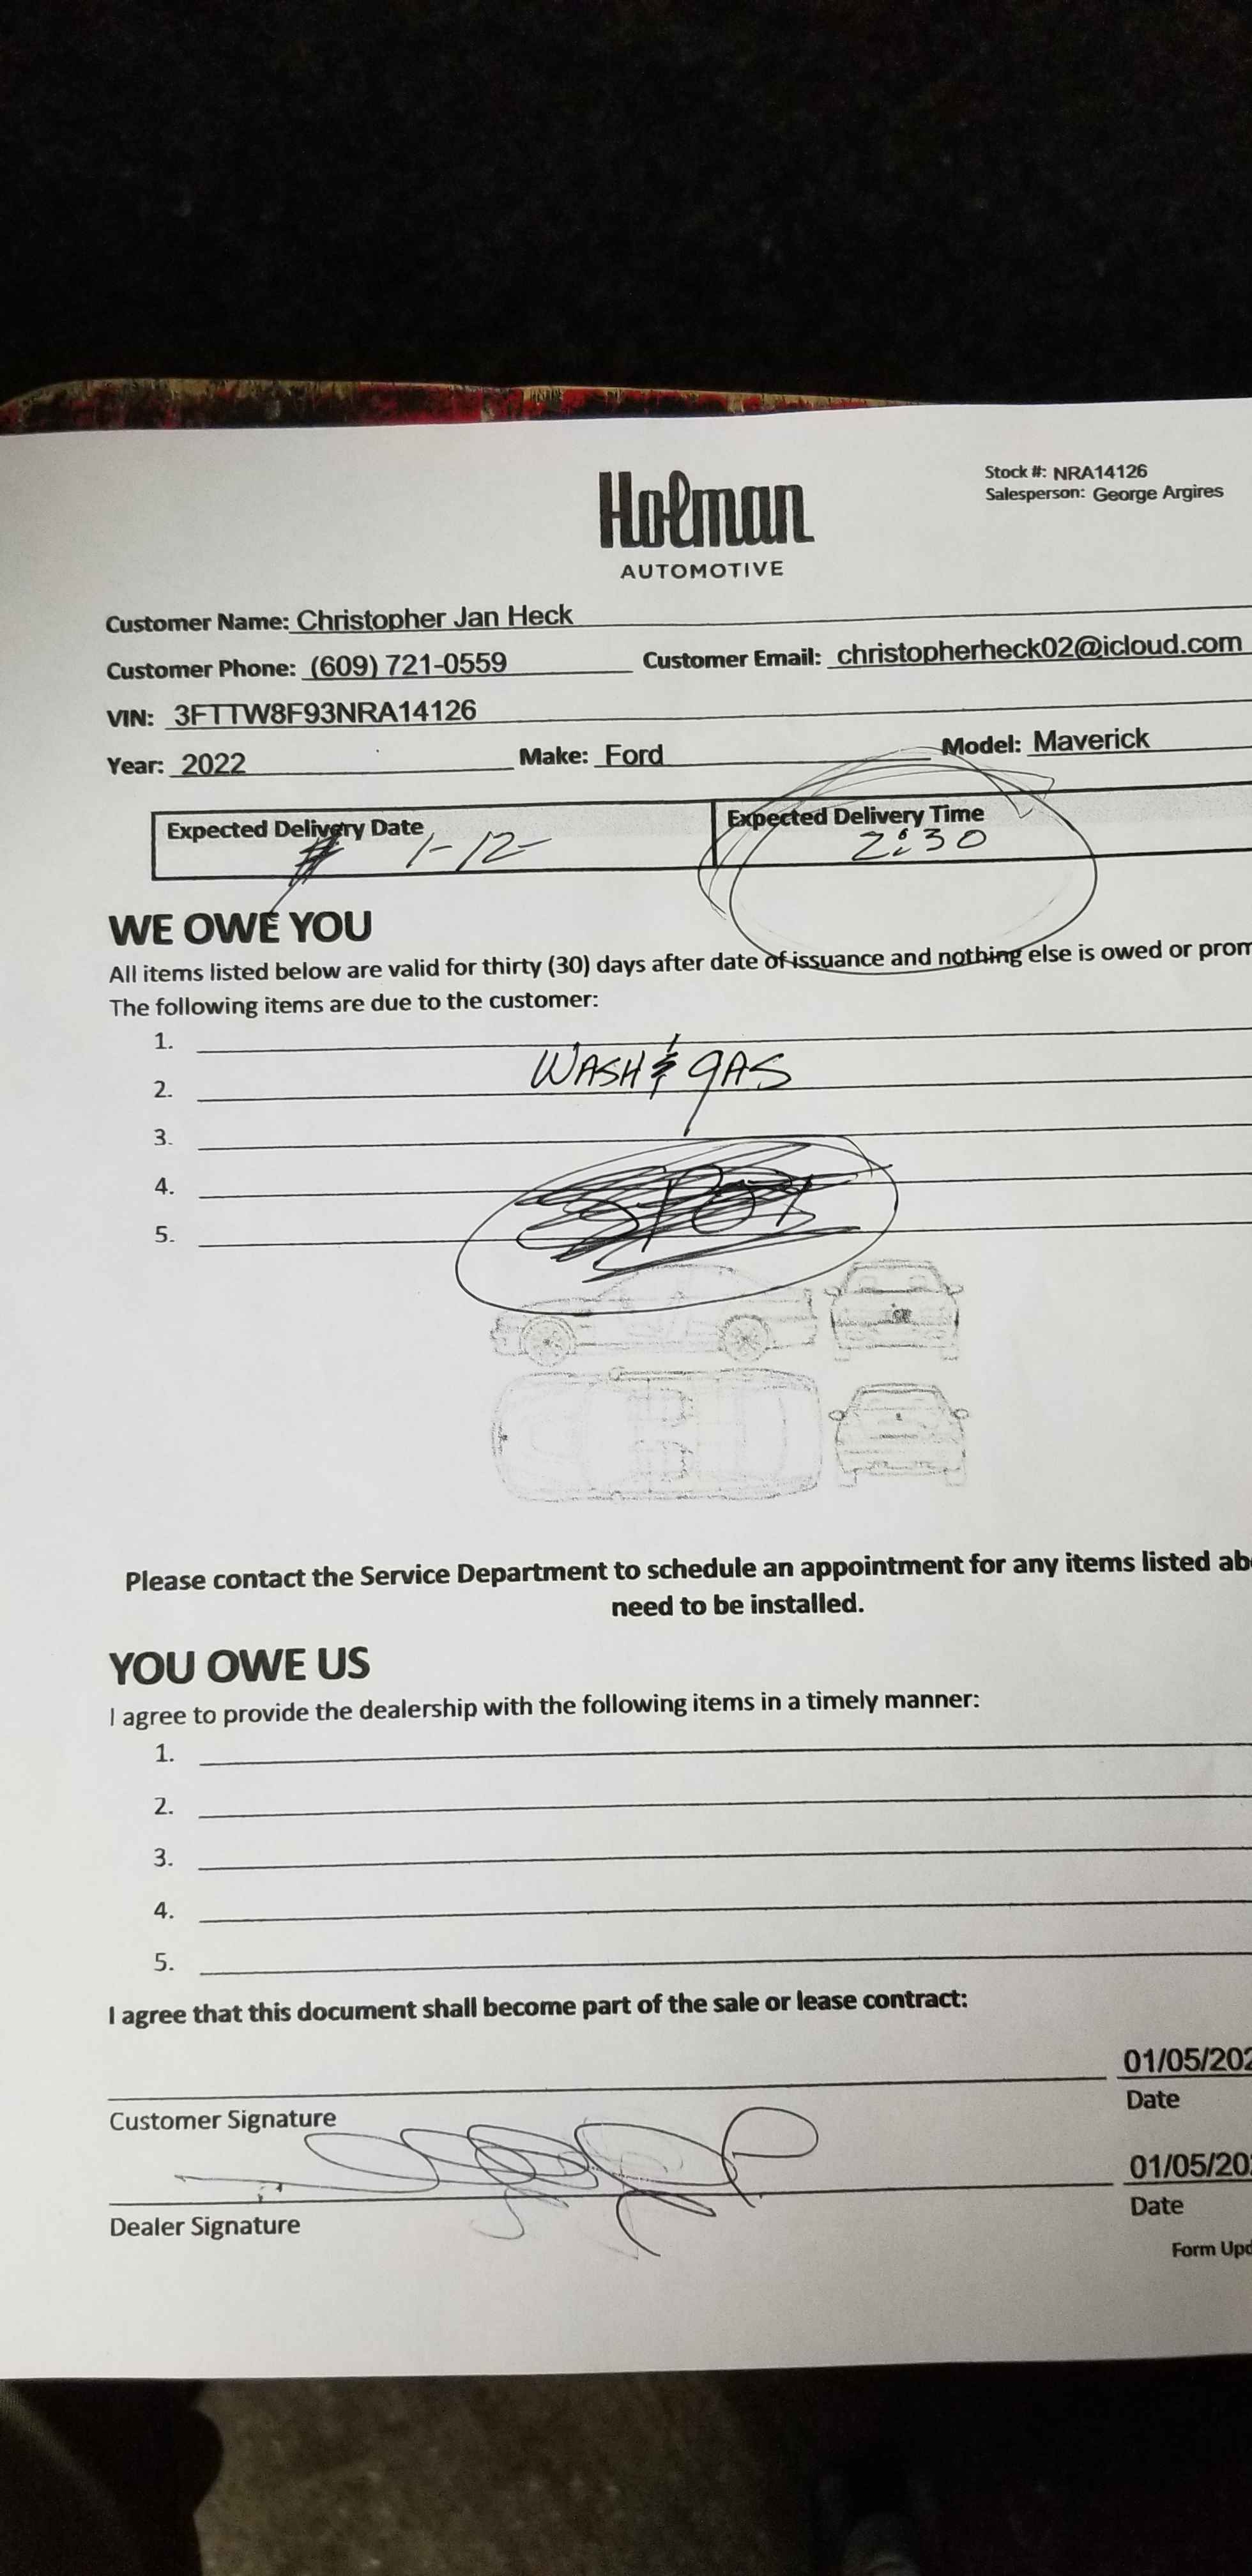 Holman
AUTOMOTIVE
Stock #: NRA14126
Salesperson: George Argires
Customer Name: Christopher Jan Heck
Customer Phone: (609) 721-0559 Customer Email: christopherheck02@icloud.com
VIN: 3FTTW8F93NRA14126
Year: 2022 Make: Ford Model: Maverick
Expected Delivery Date 1-12- Expected Delivery Time 2:30
WE OWE YOU
All items listed below are valid for thirty (30) days after date of issuance and nothing else is owed or prom
The following items are due to the customer:
1.
WASH & GAS
2.
3.
4.
5.
Please contact the Service Department to schedule an appointment for any items listed ab
need to be installed.
YOU OWE US
I agree to provide the dealership with the following items in a timely manner:
1.
2.
3.
4.
5.
I agree that this document shall become part of the sale or lease contract:
01/05/202
Customer Signature Date
01/05/20
Dealer Signature Date
Form Upd